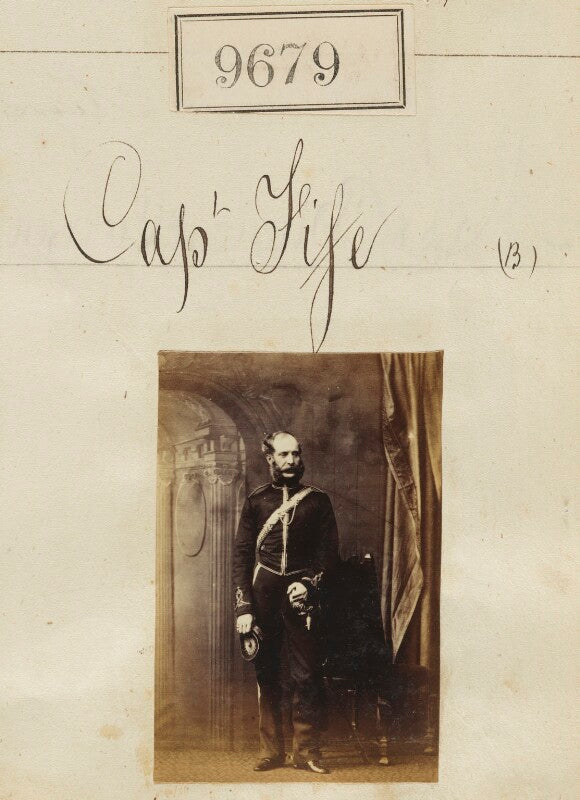 9679
Capt Fife (B)